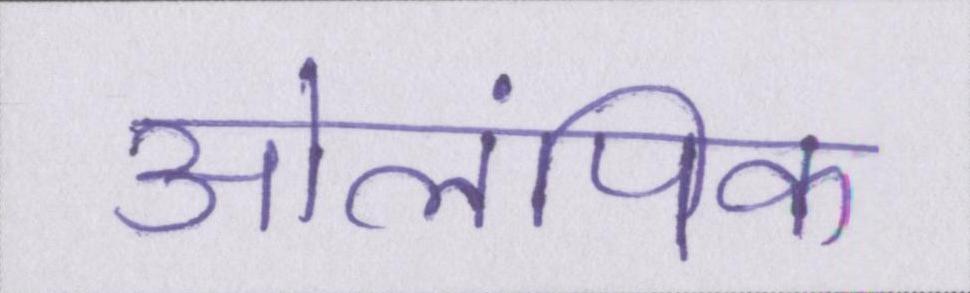 ओलंपिक